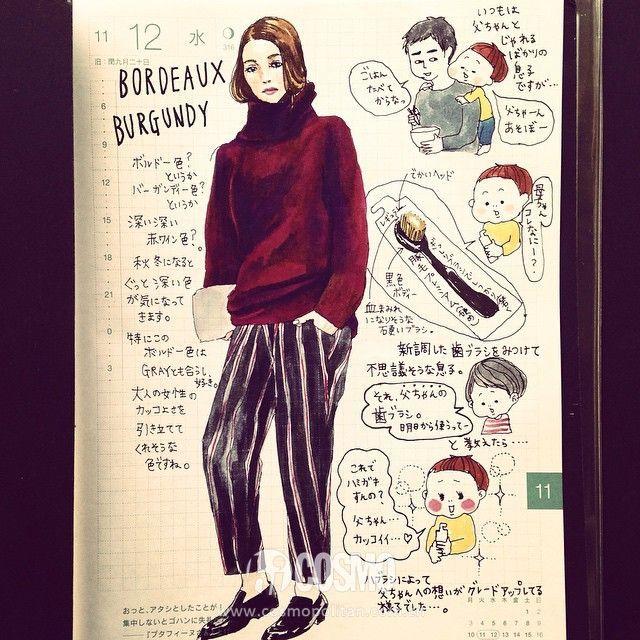 11 12 水
316
旧:閏九月二十日
BORDEAUX
BURGUNDY
ボルドー色?
というか
バーガンディー色?
というか
深い深い
赤ワイン色?。
秋冬になると
ぐっと深い色
が気になって
きます。
特にこの
ボルドー色は
GRAYとも合うし、
好き。
大人の女性の
カッコよさを
引き立てて
くれそうな
色ですね。
いつもは
父ちゃんと
じゃれる
ばかりの
息子
ですが…
ごはん
たべて
からなっ
父ちゃーん
あそぼー
でかいヘッド
レギュラー
黒色
ボディー
血まみれ
になりそうな
石更いブラシ。
母ちゃん
コレなにー?
新調した歯ブラシをみつけて
不思議そうな息子。
それ、父ちゃんの
歯ブラシ。
明日から使うってー
と教えたら…
これで
ハミガキ
すんの?
父ちゃん…
カッコイイ…♡
ハブラシによって
父ちゃんへの想いがグレードアップしてる
様子でした…。
11
COSMO
www.cosmopolitan.com
おっと、アタシとしたことが!
集中しないとゴハンに失
『ブタフィーヌ
月 火 水 木 金 土 日
1 2
3 4 5 6 7 8 9
10 11 12 13 14 15 16